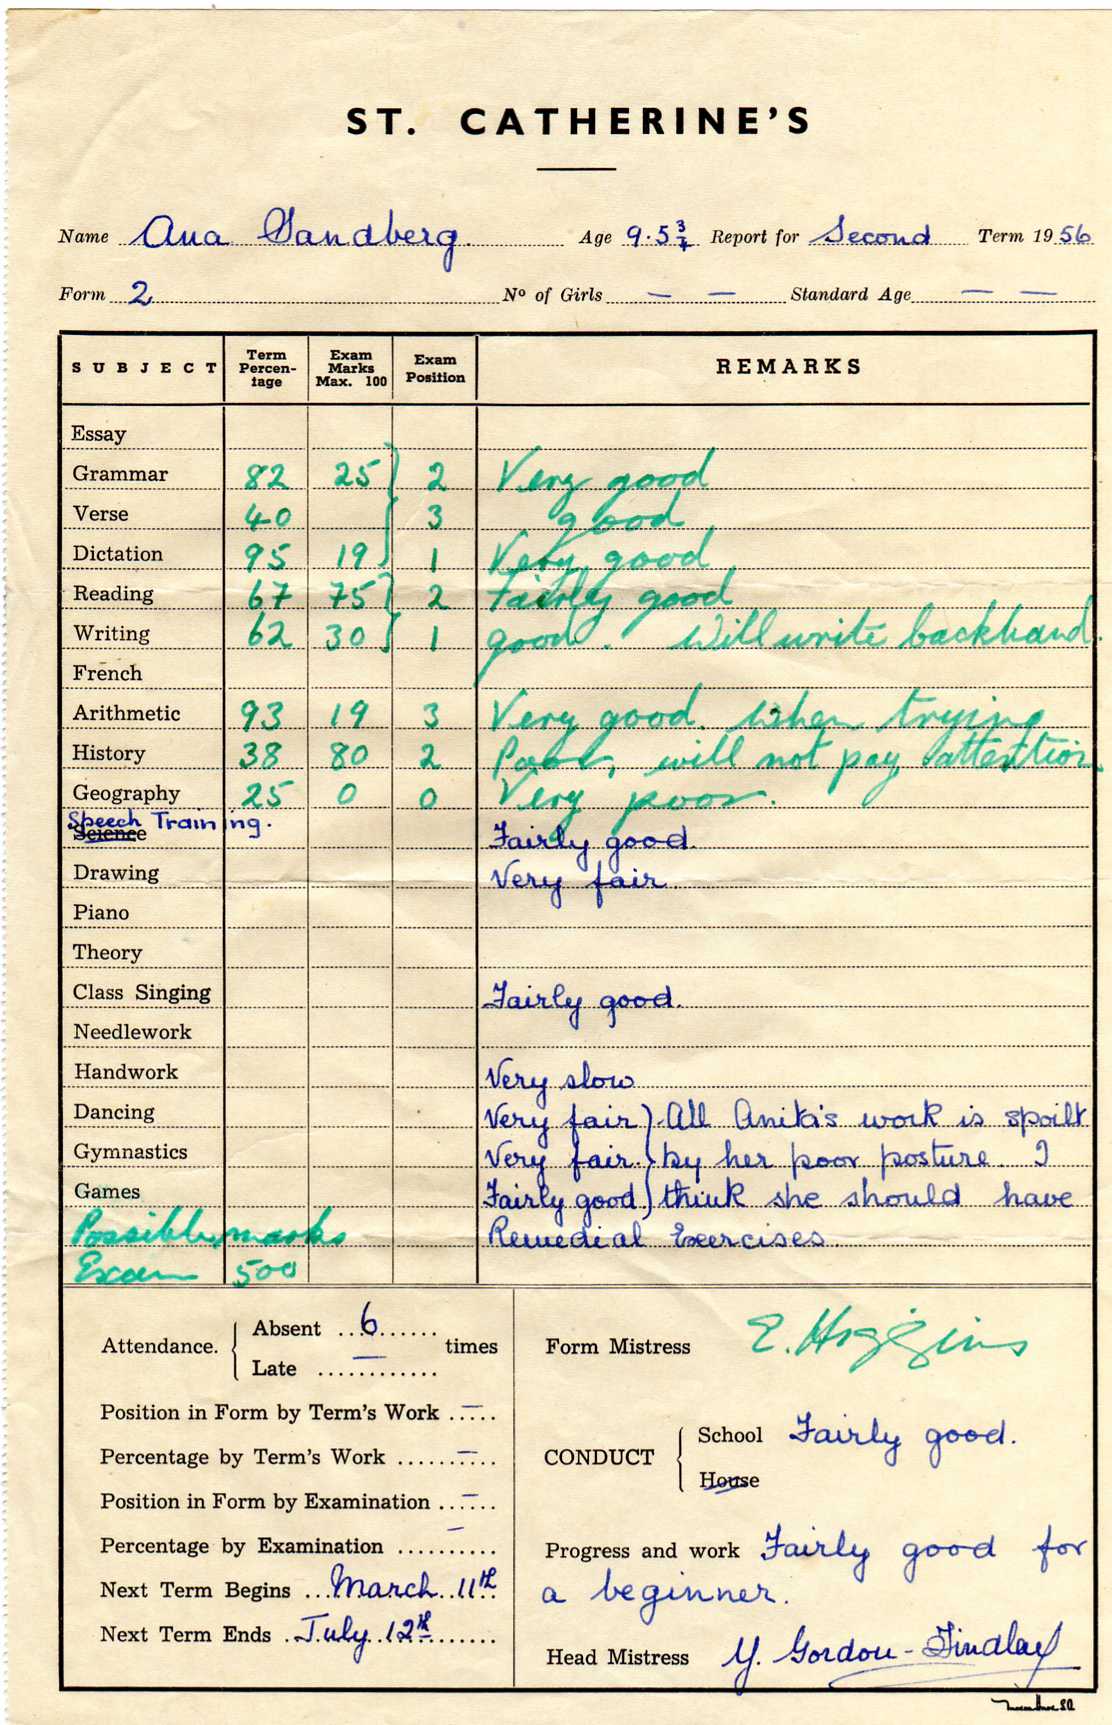 ST. CATHERINE'S
Name Ana Sandberg. Age 9.5¾ Report for Second Term 1956
Form 2 Nº of Girls — — Standard Age — —
SUBJECT Term Percentage Exam Marks Max. 100 Exam Position REMARKS
Essay
Grammar 82 25 2 Very good
Verse 40 3 good
Dictation 95 19 1 Very good
Reading 67 75 2 Fairly good
Writing 62 30 1 good. Will write backhand.
French
Arithmetic 93 19 3 Very good. when trying
History 38 80 2 Poor, will not pay attention
Geography 25 0 0 Very poor.
Speech Training.
Science Fairly good.
Drawing Very fair.
Piano
Theory
Class Singing Fairly good.
Needlework
Handwork Very slow
Dancing Very fair All Anita's work is spoilt
Gymnastics Very fair. by her poor posture. I
Games Fairly good think she should have
Possible marks Remedial Exercises.
Exam 500
Attendance. Absent 6 times
Late —
Position in Form by Term's Work —
Percentage by Term's Work —
Position in Form by Examination —
Percentage by Examination —
Next Term Begins March 11th
Next Term Ends July 12th
Form Mistress E. Higgins
CONDUCT School Fairly good.
House
Progress and work Fairly good for
a beginner.
Head Mistress Y. Gordon-Findlay